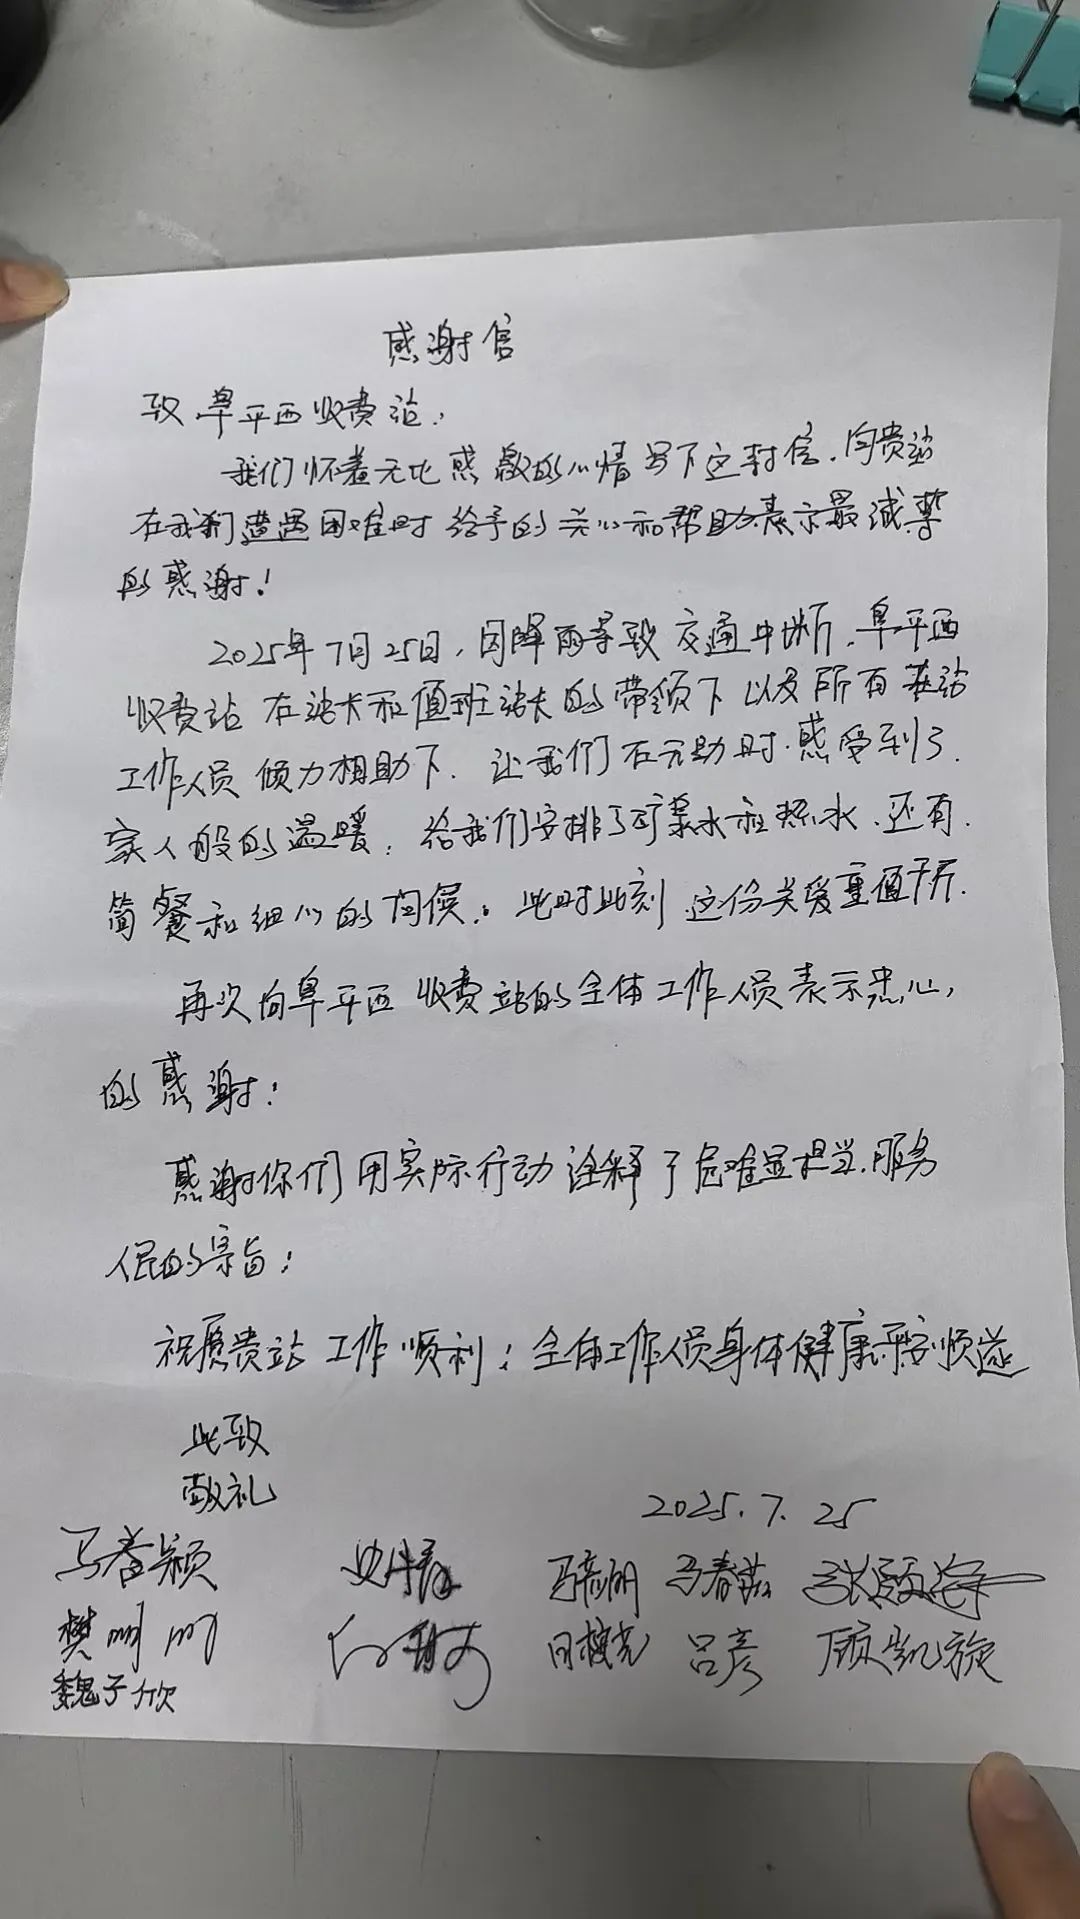 感谢信
致阜平西收费站，
我们怀着无比感激的心情写下这封信，向贵站
在我们遭遇困难时给予的关心和帮助表示最诚挚
的感谢！
2025年7月25日，因降雨导致交通中断，阜平西
收费站在站长和值班站长的带领下以及所有在站
工作人员倾力相助下，让我们在无助时，感受到了
家人般的温暖，给我们安排了矿泉水和热水、还有
简餐和细心的问候。此时此刻，这份关爱重值千斤．
再次向阜平西收费站的全体工作人员表示忠心，
的感谢！
感谢你们用实际行动诠释了危难显担当，服务
人民的宗旨！
祝愿贵站工作顺利！全体工作人员身体健康平安顺遂
此致
敬礼
2025.7.25
马春颖 马彦明 马春茹
樊 吕彦 顾凯旋
魏子欣